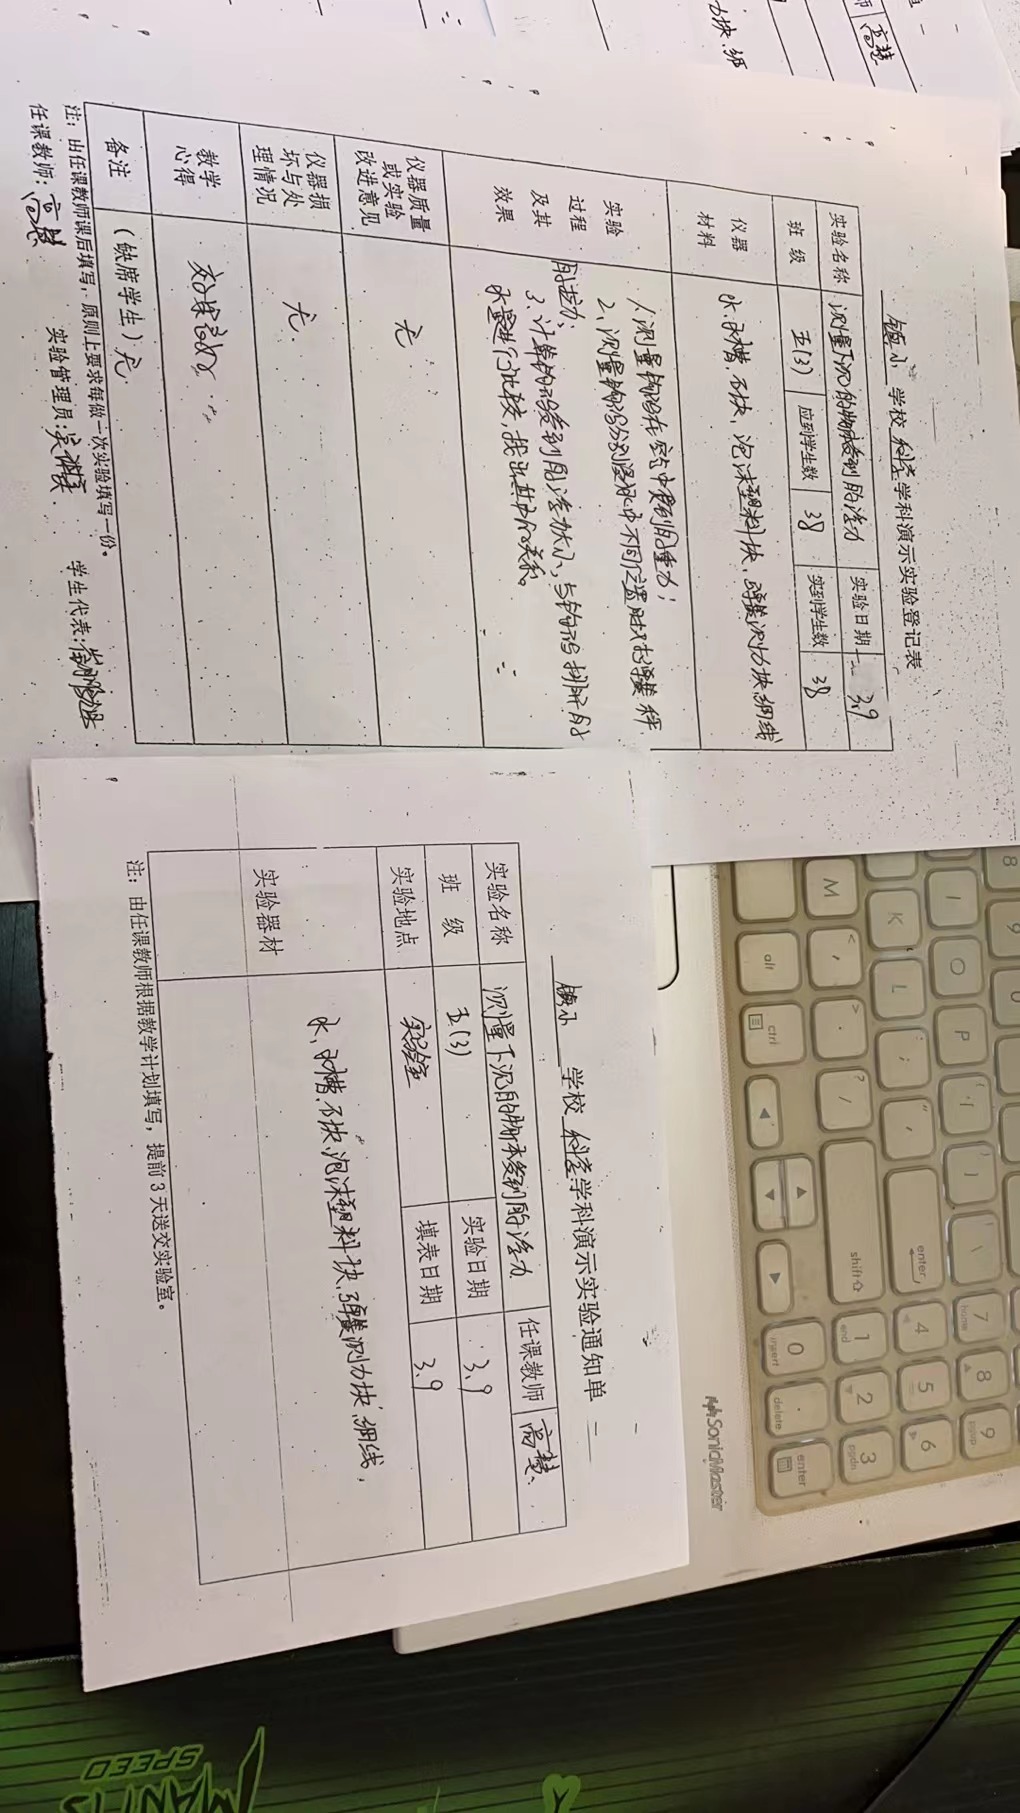 镇小 学校 科学 学科演示实验登记表
实验名称 测量下沉的物体受到的浮力 实验日期 3.9
班 级 五(3) 应到学生数 38 实到学生数 38
仪器材料 水、水槽、石块、泡沫塑料块、弹簧测力块、细线
实验过程及其效果
1、测量钩码在空气中受到的重力；
2、测量钩码分别浸水中不同位置时
的拉力；
3、计算钩码受到的浮力大小，与钩码排开的
水量进行比较，找出其中的关系。
仪器质量或实验改进意见 无
仪器损坏与处理情况 无
教学心得 效果较好
备注 (缺席学生) 无
注：由任课教师课后填写，原则上要求每做一次实验填写一份。
任课教师：高慧 实验管理员： 学生代表：
镇小 学校 科学 学科演示实验通知单
实验名称 测量下沉的物体受到的浮力 任课教师 高慧
班 级 五(3) 实验日期 3.9
实验地点 实验室 填表日期 3.9
实验器材 水、水槽、石块、泡沫塑料块、弹簧测力块、细线，
注：由任课教师根据教学计划填写，提前3天送交实验室。
SonicMaster
MANTIS
SPEED